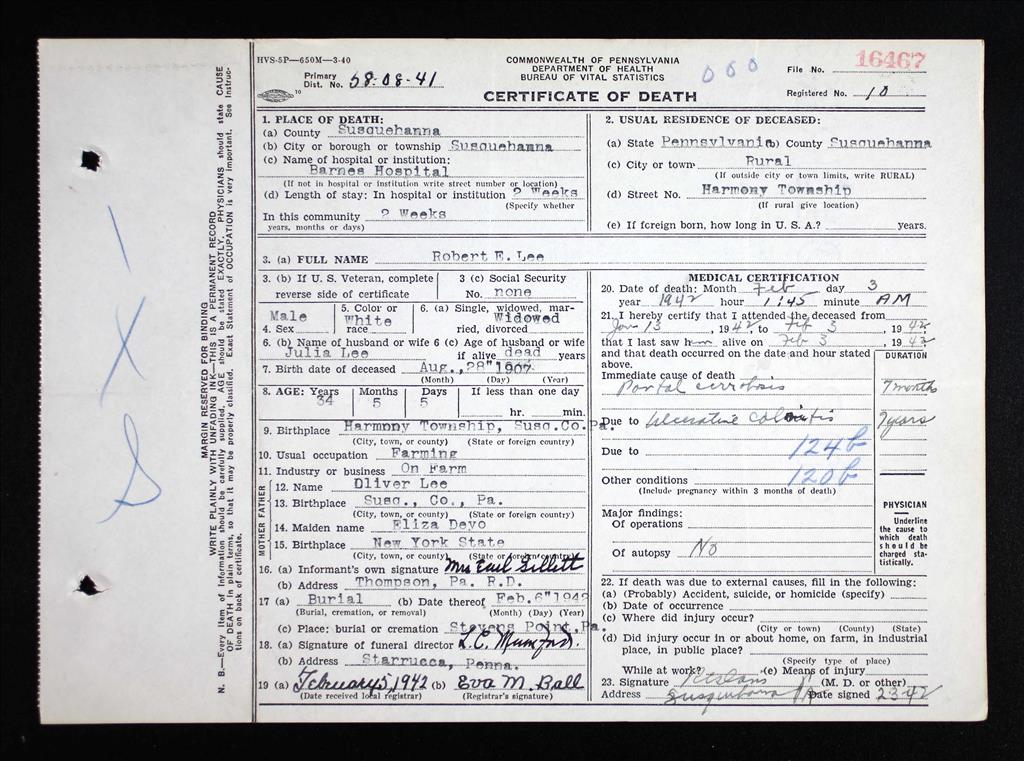 HVS-5P—650M—3-40
COMMONWEALTH OF PENNSYLVANIA
DEPARTMENT OF HEALTH
BUREAU OF VITAL STATISTICS
CERTIFICATE OF DEATH
Primary Dist. No. 58-08-41
000
File No. 16467
Registered No. 10
MARGIN RESERVED FOR BINDING
WRITE PLAINLY WITH UNFADING INK—THIS IS A PERMANENT RECORD
N. B.—Every item of information should be carefully supplied. AGE should be stated EXACTLY. PHYSICIANS should state CAUSE
OF DEATH in plain terms, so that it may be properly classified. Exact Statement of OCCUPATION is very important. See Instruc-
tions on back of certificate.
1. PLACE OF DEATH:
(a) County Susquehanna
(b) City or borough or township Susquehanna
(c) Name of hospital or institution:
Barnes Hospital
(If not in hospital or institution write street number or location)
(d) Length of stay: In hospital or institution 2 Weeks
(Specify whether
In this community 2 Weeks
years, months or days)
2. USUAL RESIDENCE OF DECEASED:
(a) State Pennsylvania (b) County Susquehanna
(c) City or town Rural
(If outside city or town limits, write RURAL)
(d) Street No. Harmony Township
(If rural give location)
(e) If foreign born, how long in U. S. A.? years.
3. (a) FULL NAME Robert E. Lee
3. (b) If U. S. Veteran, complete
reverse side of certificate
3 (c) Social Security
No. none
4. Sex Male
5. Color or race White
6. (a) Single, widowed, mar-
ried, divorced Widowed
6. (b) Name of husband or wife
Julia Lee
6 (c) Age of husband or wife
if alive dead years
7. Birth date of deceased Aug., 28" 1907
(Month) (Day) (Year)
8. AGE: Years 34 Months 5 Days 5 If less than one day
hr. min.
9. Birthplace Harmony Township, Susq.Co.Pa.
(City, town, or county) (State or foreign country)
10. Usual occupation Farming
11. Industry or business On Farm
FATHER
12. Name Oliver Lee
13. Birthplace Susq., Co., Pa.
(City, town, or county) (State or foreign country)
MOTHER
14. Maiden name Eliza Devo
15. Birthplace New York State
(City, town, or county) (State or foreign country)
16. (a) Informant's own signature Mrs Earl Gillett
(b) Address Thompson, Pa. R.D.
17 (a) Burial (b) Date thereof Feb. 6" 1942
(Burial, cremation, or removal) (Month) (Day) (Year)
(c) Place: burial or cremation Stevens Point, Pa.
18. (a) Signature of funeral director L.C. Mumford.
(b) Address Starrucca, Penna.
19 (a) February 5, 1942 (b) Eva M. Ball
(Date received local registrar) (Registrar's signature)
MEDICAL CERTIFICATION
20. Date of death: Month Feb day 3
year 1942 hour 1:45 minute AM
21. I hereby certify that I attended the deceased from
Jan 13, 1942, to Feb 3, 1942,
that I last saw him alive on Feb 3, 1942
and that death occurred on the date and hour stated
above.
DURATION
Immediate cause of death
Portal cirrhosis 7 months
Due to Ulcerative colitis 7 years
Due to 124b
Other conditions 120b
(Include pregnancy within 3 months of death)
Major findings:
Of operations
Of autopsy No
PHYSICIAN
Underline
the cause to
which death
should be
charged sta-
tistically.
22. If death was due to external causes, fill in the following:
(a) (Probably) Accident, suicide, or homicide (specify)
(b) Date of occurrence
(c) Where did injury occur?
(City or town) (County) (State)
(d) Did injury occur in or about home, on farm, in industrial
place, in public place?
(Specify type of place)
While at work? (e) Means of injury
23. Signature (M. D. or other)
Address Susquehanna Pa Date signed 2-3-42